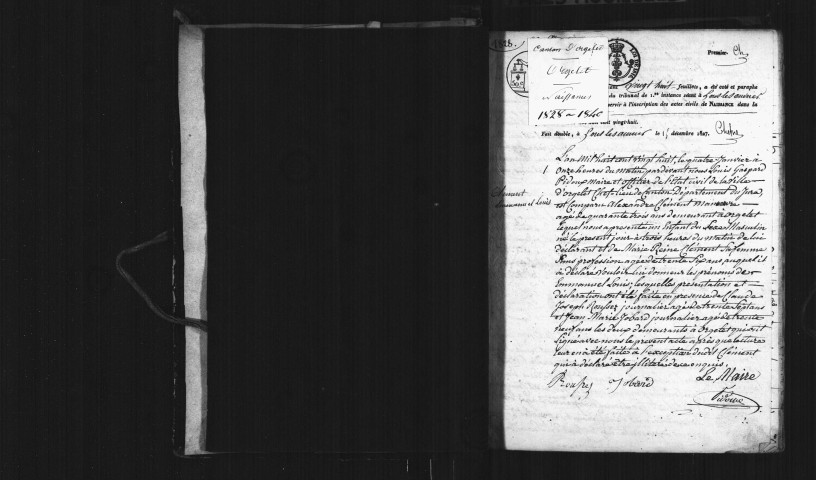 1828.
Canton D'orgelet
Orgelet
Naissances
1828 - 1840
Premier
vingt huit feuillets, a été coté et paraphé
du tribunal de 1.re instance séant à Lons le saunier
servir à l'inscription des actes civils de NAISSANCE dans la
vingt-huit.
Fait double, à Lons le saunier le 15 décembre 1827.
1.
Clement
Emmanuel Louis
L'an mil huit cent vingt huit, le quatre Janvier à
onze heures du matin, pardevant nous Louis Gaspard
Pidoux maire et officier de l'état civil de la ville
d'orgelet Chef lieu de Canton Département du Jura,
est comparu Alexandre Clément Manœuvre
agé de quarante trois ans demeurant à orgelet
lequel nous a présenté un Enfant du Sexe Masculin
né le présent jour à trois heures du matin de lui
déclarant et de Marie Reine Clément Sa femme
Sans profession agée de trente Six ans auquel il
a déclaré vouloir lui donner les prénoms de
Emmanuel Louis, lesquelles présentation et
déclaration ont été faite en présence de Claude
Joseph journalier agé de trente Sept ans
et Jean Marie Jobard journalier agé de trente
neuf ans les deux demeurants à Orgelet qui ont
Signé avec nous le présent acte après que lecture
leur en a été faite à l'exception dudit Clément
qui a déclaré être illiteré de ce enquis.
Jobard Le Maire
Pidoux